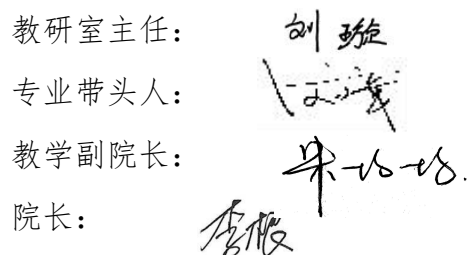 教研室主任: 刘璇
专业带头人:
教学副院长: 朱
院长: 李根